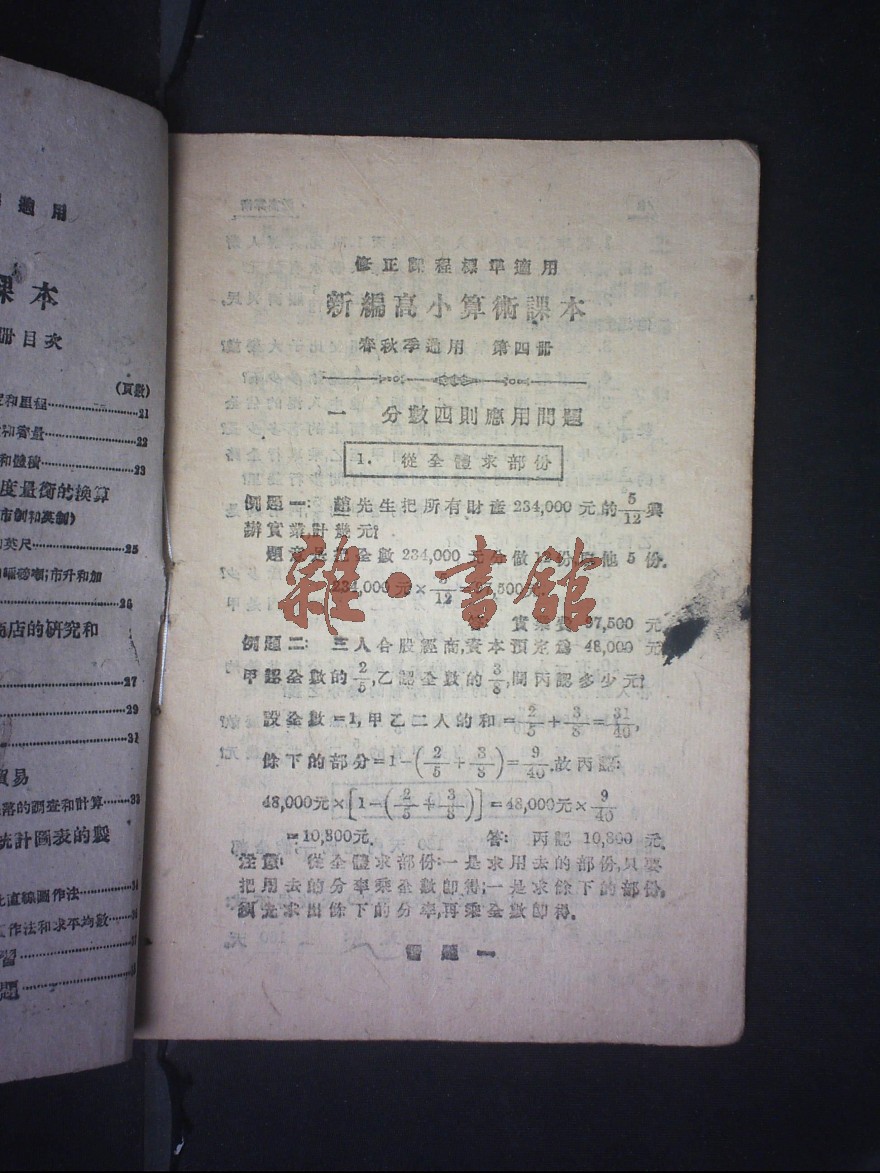 適用
課本
冊目次
(頁數)
和里程……21
和容量……22
和體積……23
度量衡的換算
(市制和英制)
英尺……25
市升和加
……26
商店的研究和
……27
……29
……31
貿易
落的調查和計算……33
統計圖表的製
直線圖作法……34
作法和求平均數……36
習
題
修正課程標準適用
新編高小算術課本
春秋季適用 第四冊
一 分數四則應用問題
1. 從全體求部份
例題一: 趙先生把所有財產 234,000 元的 5/12 興
辦實業計幾元?
題意是把全數 234,000 元分做12份 他 5 份.
234,000元× 5/12 =97,500元.
答: 實業費 97,500 元.
例題二: 三人合股經商,資本預定爲 48,000 元
甲認全數的 2/5,乙認全數的 3/8,問丙認多少元?
設全數=1,甲乙二人的和= 2/5 + 3/8 = 31/40,
餘下的部分=1-( 2/5 + 3/8 )= 9/40.故丙認:
48,000元×[1-( 2/5 + 3/8 )]=48,000元× 9/40
=10,800元. 答: 丙認 10,800 元.
注意: 從全體求部份:一是求用去的部份,只要
把用去的分率乘全數卽得;一是求餘下的部份,
須先求出餘下的分率,再乘全數卽得.
習題一
雜·書館